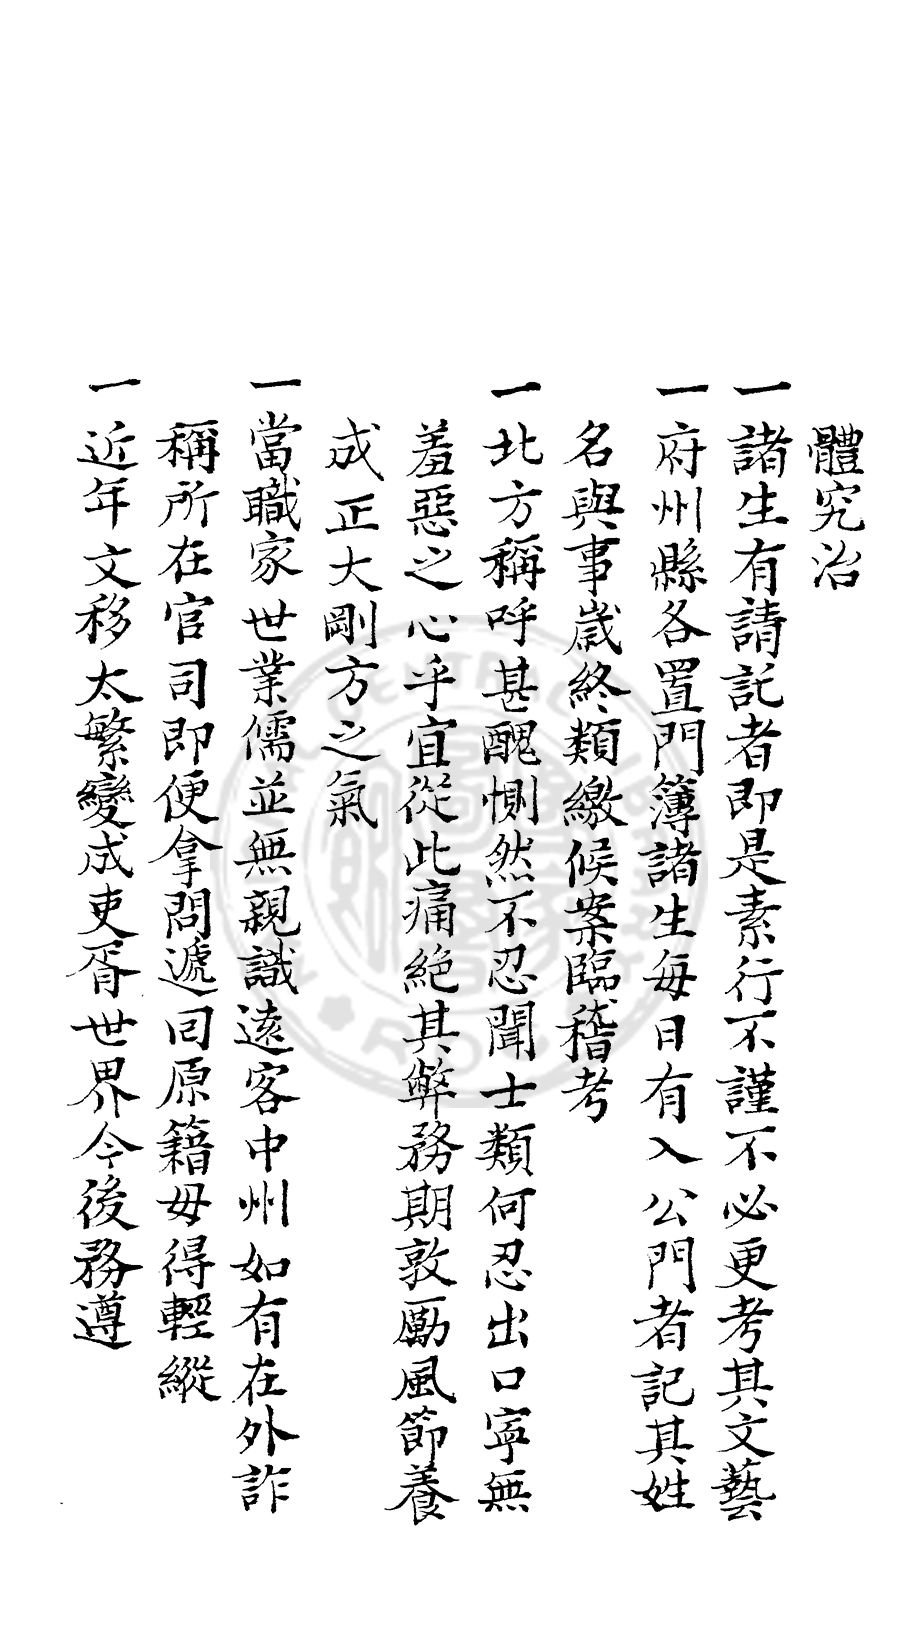 體究治
一諸生有請託者即是素行不謹不必更考其文藝
一府州縣各置門簿諸生每日有入公門者記其姓
名與事歲終類繳候案臨稽考
一北方稱呼甚醜惻然不忍聞士類何忍出口寧無
羞惡之心乎宜從此痛絕其弊務期敦勵風節養
成正大剛方之氣
一當職家世業儒並無親識遠客中州如有在外詐
稱所在官司即便拿問遞回原籍毋得輕縱
一近年文移太繁變成吏胥世界今後務遵